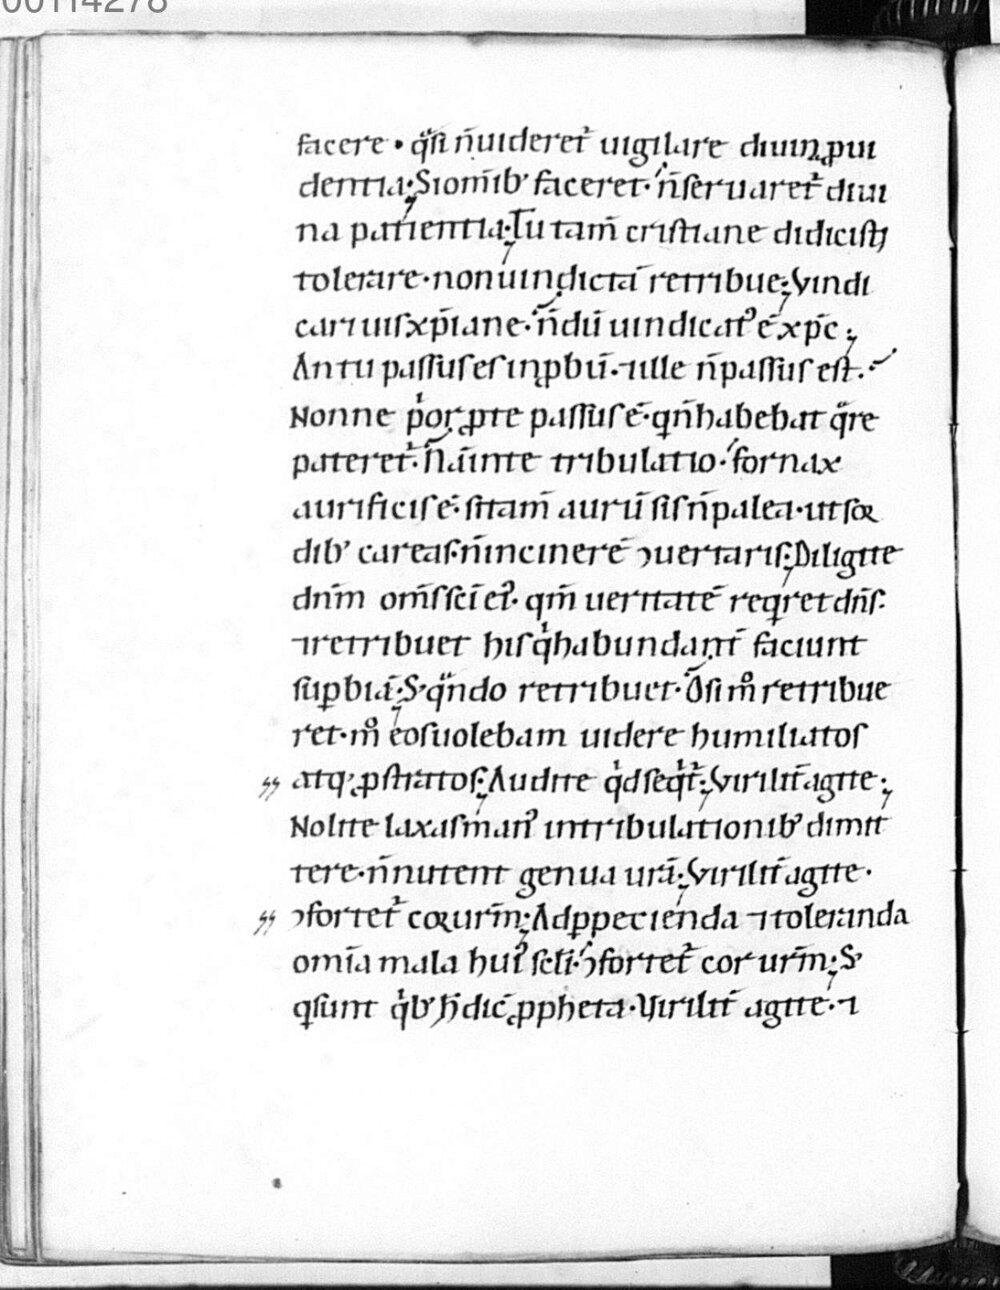 00114278
facere · q̈si n̄ uideret᷑ uigilare diuin̨ ꝓui
dentia; Si om̄ib’ faceret· n̄ seruaret᷑ diui
na patientia; Tu tam̄ cristiane didicisti
tolerare· non uindictā retribue; Vindi
cari uis xp̄iane· n̄dū uindicat᷒ ē xp̄c;
An tu passus es inꝓbū· ⁊ ille n̄ passus est·
Nonne p̍or ꝓ te passus ē· qn̄ habebat q̈re
pateret᷑· Nā in te tribulatio· fornax
aurificis ē· si tam̄ aurū sis n̄ palea· ut sor
dib’ careas· n̄ in cinerē ꝯuertaris; Diligite
dn̄m om̄s sc̄i ei᷒· qm̄ ueritatē reqͥret dn̄s·
⁊ retribuet his qͥ habundant᷑ faciunt
suꝑbiā; S; q̈ndo retribuet· O si m° retribue
ret· m° eos uolebam uidere humiliatos
atq; ꝓstratos; Audite qͥd seqͥt᷑; Virilit᷑ agite;
Nolite laxas man᷒ in tribulationib’ dimit
tere· n̄ nutent genua ur̄a; Virilit᷑ agite·
ꝯfortet᷑ cor ur̄m; Ad ꝑpecienda ⁊ toleranda
om̄ia mala hui᷒ sc̄li· ꝯfortet᷑ cor ur̄m; S;
q sunt qͥb’ h̄ dic̄ ꝓpheta· Virilit᷑ agite· ⁊